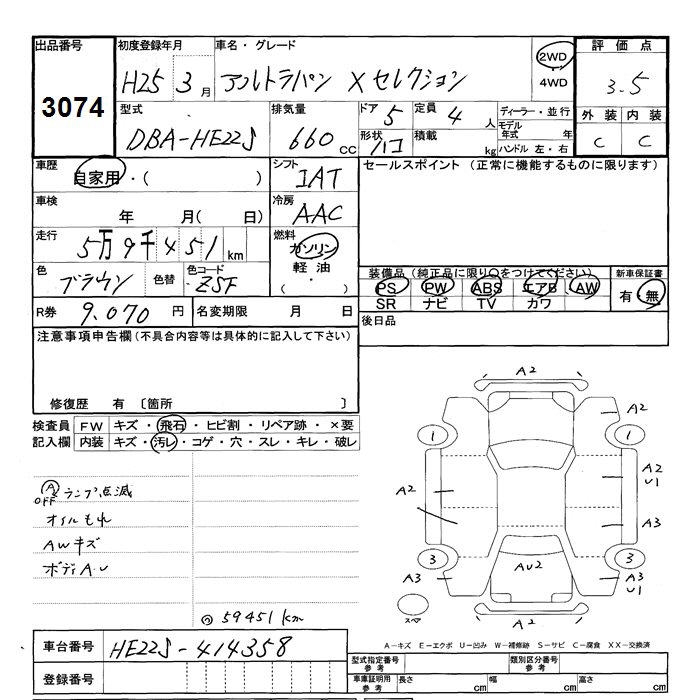 出品番号 初度登録年月 車名・グレード 評価点
3074 H25 3月 アルトラパン Xセレクション 2WD ・ 4WD 3.5
型式 排気量 ドア 5 定員 4人 ディーラー・並行 外装 内装
DBA-HE22S 660cc 形状 ハコ 積載 kg モデル年式 年 ハンドル 左・右 C C
車歴 自家用・( ) シフト IAT セールスポイント (正常に機能するものに限ります)
車検 年 月( 日) 冷房 AAC
走行 5万9千451km 燃料 ガソリン 軽油 ( ・ )
色 ブラウン 色替 色コード ZSF 装備品(純正品に限り○をつけてください) 新車保証書
PS PW ABS エアB AW 有・無
SR ナビ TV カワ
R券 9.070円 名変期限 月 日 後日品
注意事項申告欄(不具合内容等は具体的に記入して下さい)
修復歴 有 〔箇所 〕
検査員記入欄 FW キズ・飛石・ヒビ割・リペア跡・×要
内装 キズ・汚レ・コゲ・穴・スレ・キレ・破レ
A2
A2
1 1
Ⓐ OFF ランプ点滅
A2 A2 U1
オイルもれ
A3
AWキズ
ボディA.U
3 3
A3 AU2 A3 U1
スペア
A2
59451km
車台番号 HE22S-414358
A-キズ E-エクボ U-凹み W-補修跡 S-サビ C-腐食 XX-交換済
登録番号
型式指定番号 参考 類別区分番号 参考
車庫証明用 参考 長さ cm 幅 cm 高さ cm